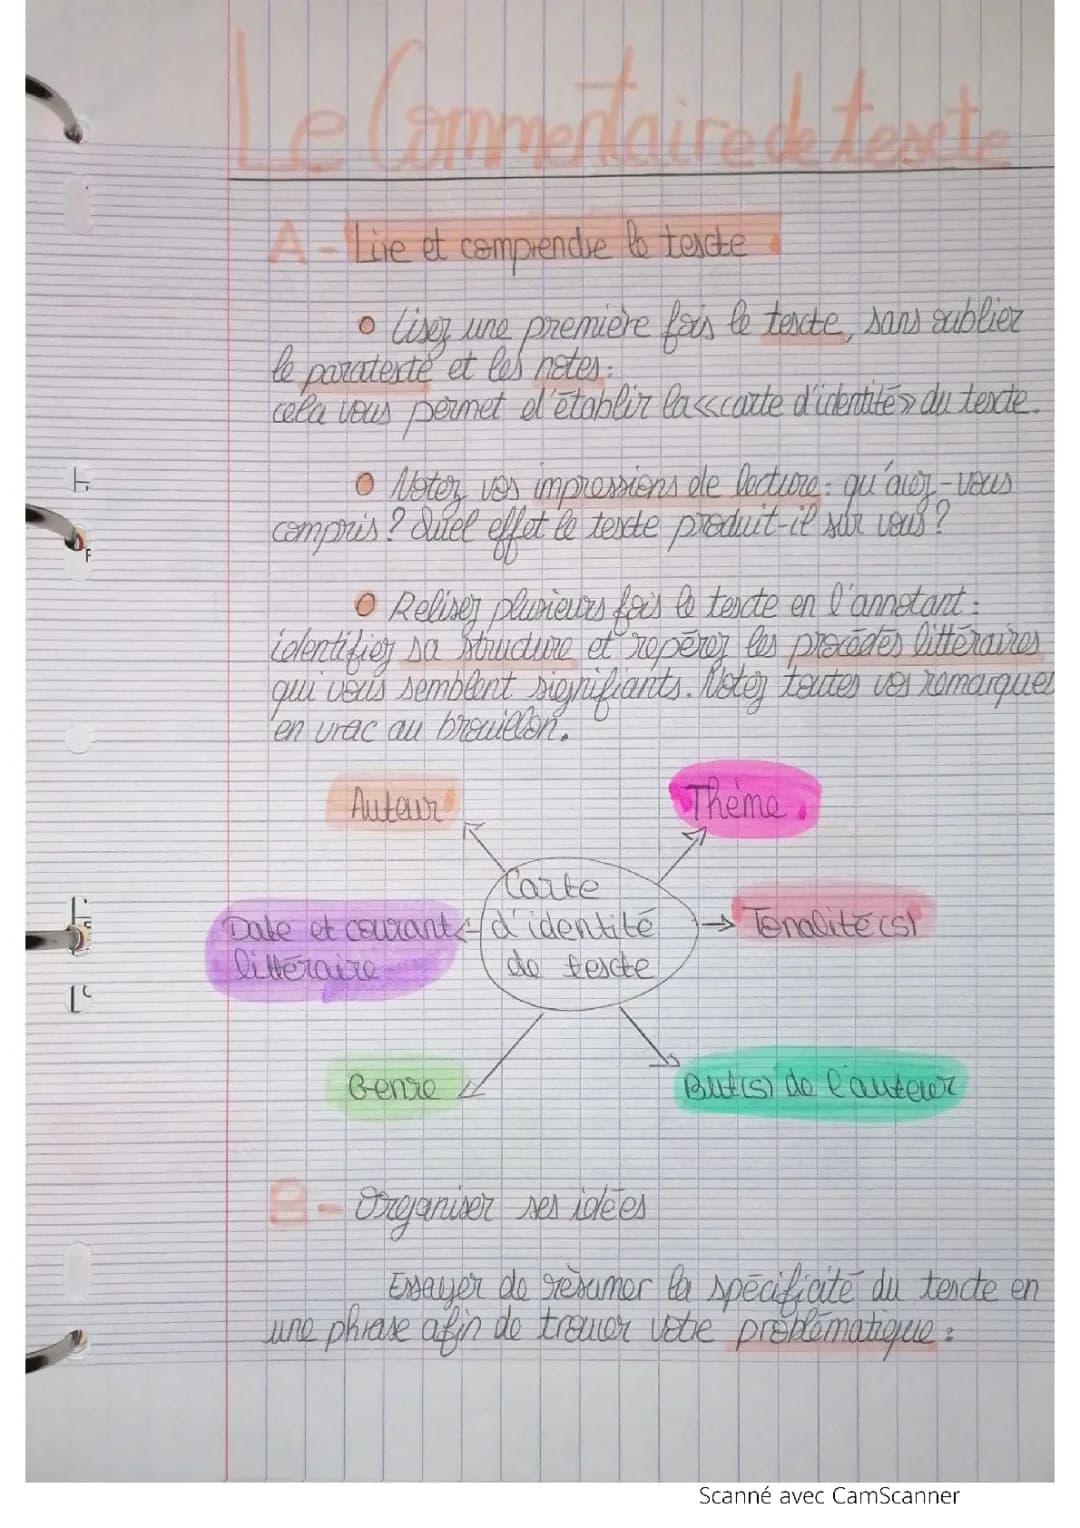 Le Commentaire de texte
A - Lire et comprendre le texte
Lisez une première fois le texte, sans oublier
le paratexte et les notes :
cela vous permet d'établir la «carte d'identité» du texte.
Notez vos impressions de lecture : qu'avez-vous
compris ? Quel effet le texte produit-il sur vous ?
Relisez plusieurs fois le texte en l'annotant :
identifiez sa structure et repérez les procédés littéraires
qui vous semblent signifiants. Notez toutes vos remarques
en vrac au brouillon.
Auteur
Thème
Carte
d'identité
de texte
Date et courant
littéraire
Tonalité(s)
Genre
But(s) de l'auteur
B - Organiser ses idées
Essayer de résumer la spécificité du texte en
une phrase afin de trouver votre problématique :
Scanné avec CamScanner